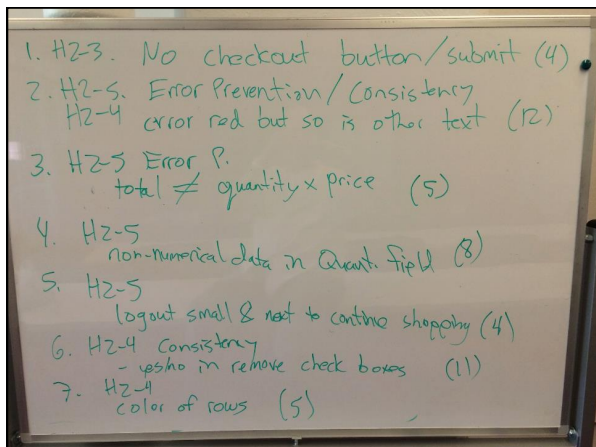 1. H2-3. No checkout button/submit (4)
2. H2-5. Error Prevention/Consistency
H2-4 error red but so is other text (12)
3. H2-5 Error P.
total ≠ quantity x price (5)
4. H2-5
non-numerical data in Quant. field (8)
5. H2-5
logout small & next to continue shopping (4)
6. H2-4 Consistency
- yes/no in remove check boxes (11)
7. H2-4
color of rows (5)